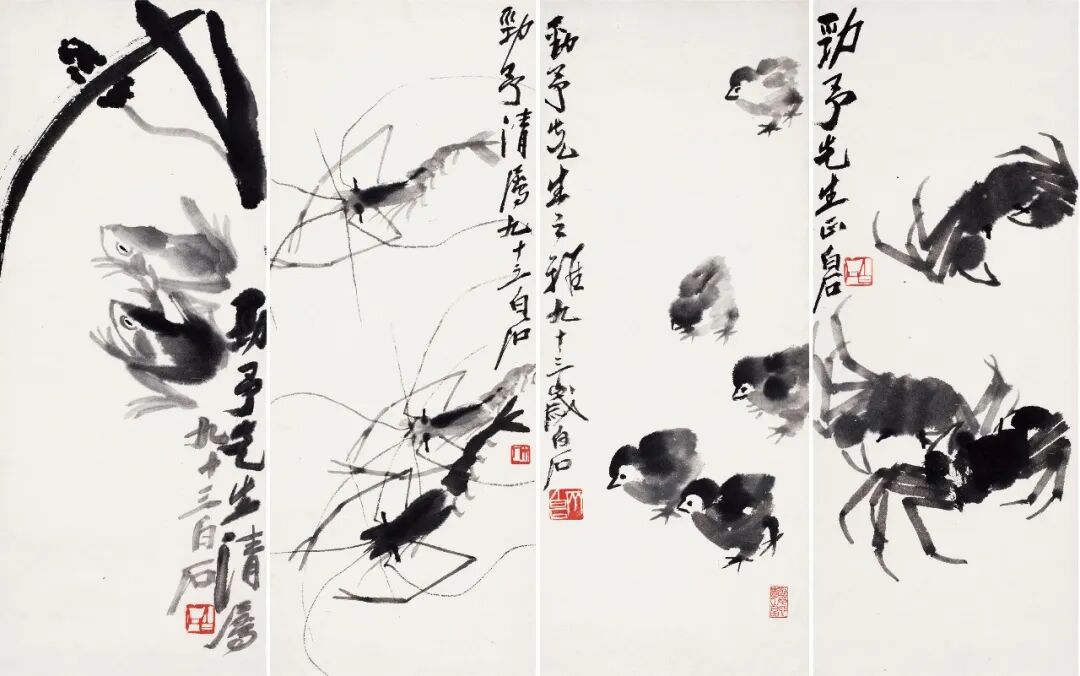 勁予先生清属
九十三白石
勁予清属九十三白石
勁予先生之雅九十三歲白石
勁予先生正白石